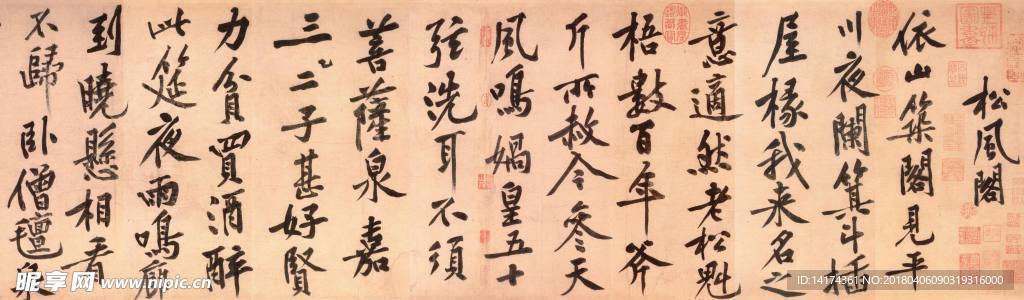 松風閣
依山築閣見平
川夜闌箕斗插
屋椽我来名之
意適然老松魁
梧數百年斧
斤所赦今參天
風鳴媧皇五十
弦洗耳不須
菩薩泉嘉
三二子甚好賢
力貧買酒醉
此筵夜雨鳴廊
到曉懸相看
不歸卧僧氈泉
昵享网 www.nipic.cn
ID:14174361 NO:20180406090319316000